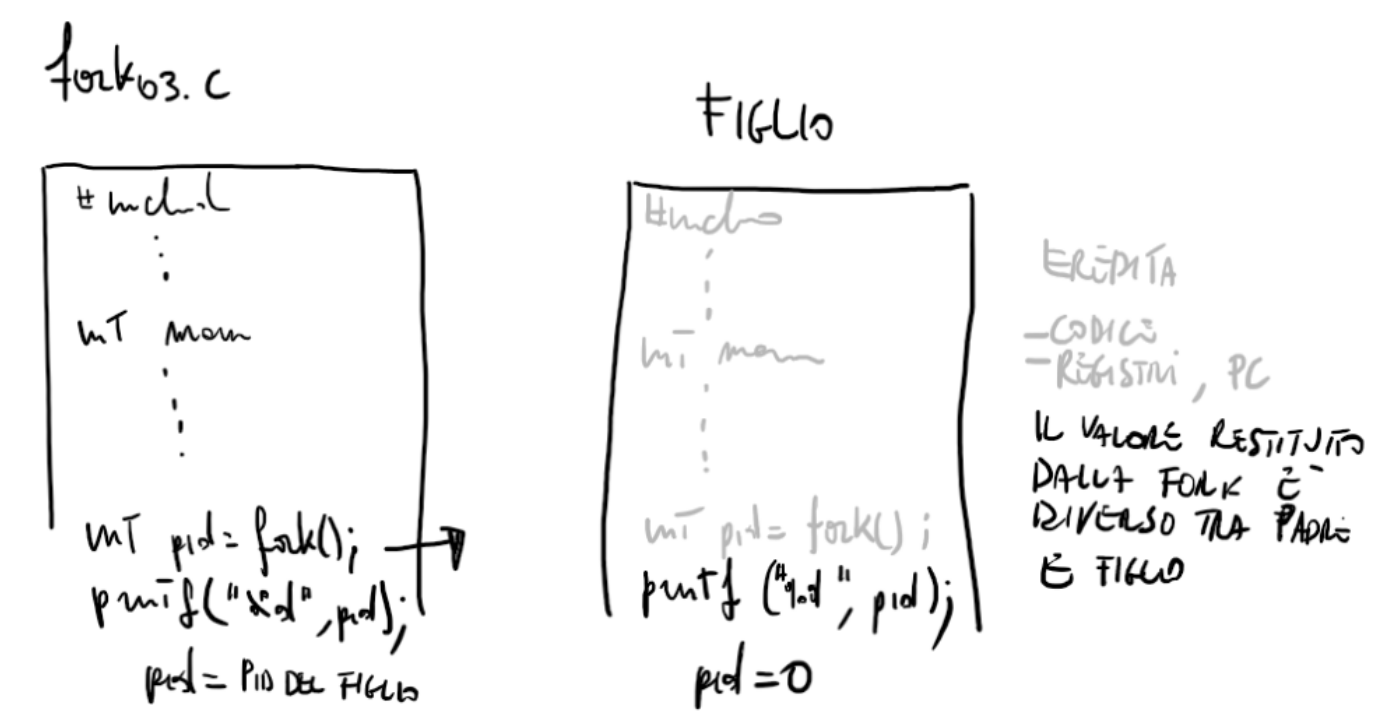 fork03.c
#include
int main
int pid = fork();
printf("%d", pid);
pid = PID DEL FIGLIO
FIGLIO
#include
int main
int pid = fork();
printf("%d", pid);
pid = 0
EREDITA
- CODICE
- REGISTRI, PC
IL VALORE RESTITUITO
DALLA FORK È
DIVERSO TRA PADRE
E FIGLIO